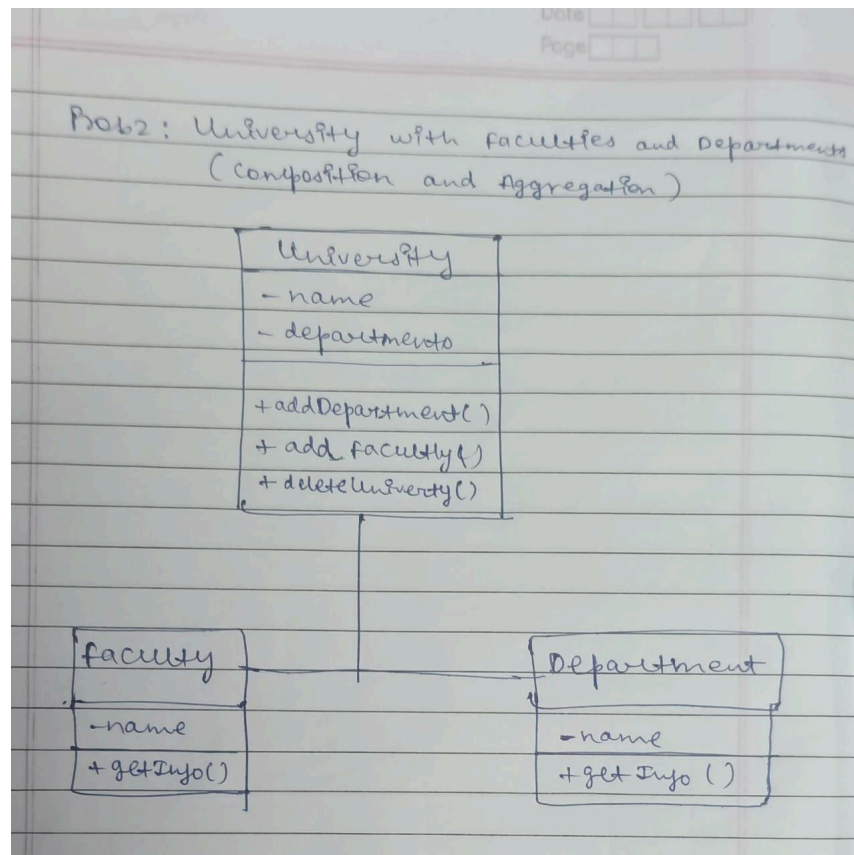 Date
Page
Prob2: University with faculties and Departments
(Composition and Aggregation)
University
- name
- departments
+ addDepartment()
+ add faculty()
+ deleteUniverty()
faculty
Department
- name
- name
+ getInfo()
+ getInfo ()